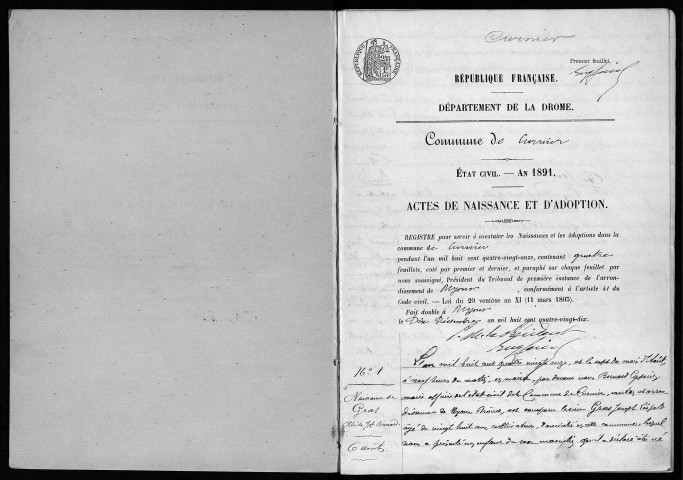 Curnier
Premier feuillet.
RÉPUBLIQUE FRANÇAISE
RÉPUBLIQUE FRANÇAISE.
DÉPARTEMENT DE LA DROME.
Commune de Curnier
ÉTAT CIVIL. — AN 1891.
ACTES DE NAISSANCE ET D'ADOPTION.
REGISTRE pour servir à constater les Naissances et les Adoptions dans la
commune de Curnier
pendant l'an mil huit cent quatre-vingt-onze, contenant quatre
feuillets, coté par premier et dernier, et paraphé sur chaque feuillet par
nous soussigné, Président du Tribunal de première instance de l'arron-
dissement de Nyons, conformément à l'article 41 du
Code civil. — Loi du 20 ventôse an XI (11 mars 1803).
Fait double à Nyons
le Dix Décembre an mil huit cent quatre-vingt-dix.
Le Président
N° 1
Naissance de
Gras
6 août
L'an mil huit cent quatre vingt onze, et le sept du mois d'Août,
à neuf heures du matin, en mairie, par devant nous Bernard Cyprien,
maire officier de l'état civil de la Commune de Curnier, canton et arron
dissement de Nyons Drôme, est comparu le sieur Gras Joseph Léopold
âgé de vingt huit ans, cultivateur, domicilié en cette commune, lequel
nous a présenté un enfant du sexe masculin qu'il a déclaré être né